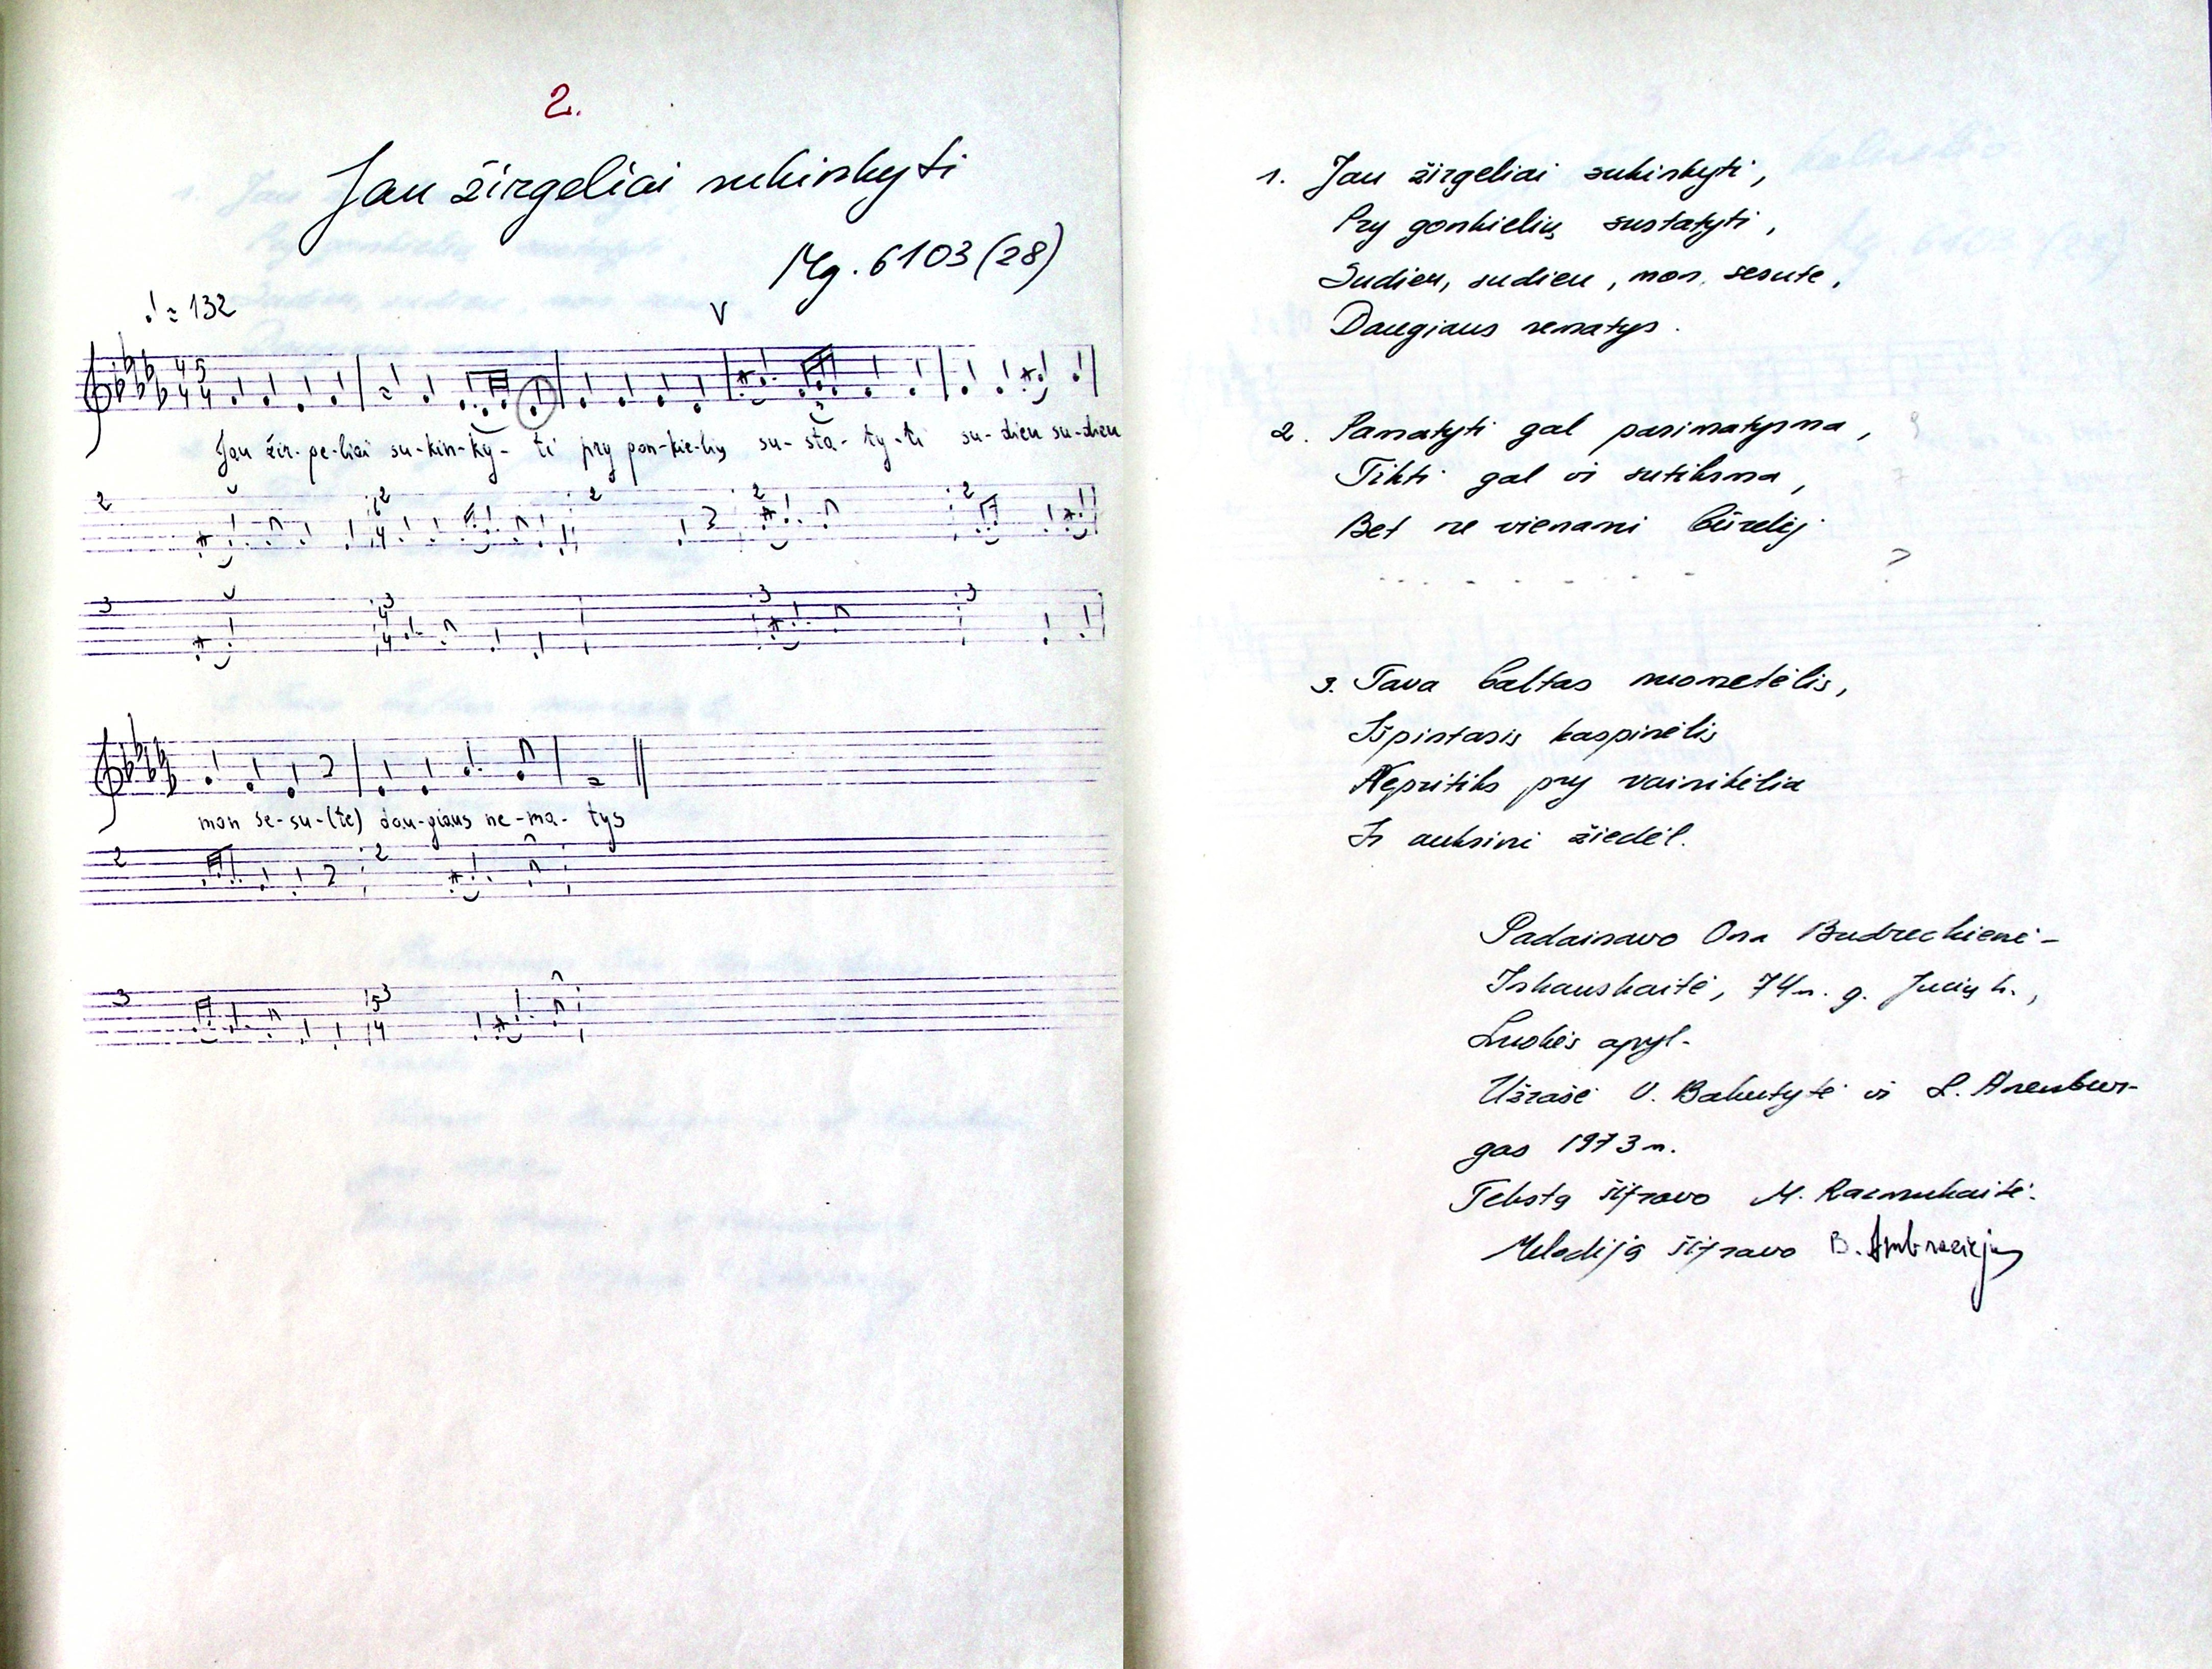 2.
Jau žirgeliai sukinkyti
Mg. 6103 (28)
= 132
V
4 5
4 4
Jau žir-ge-liai su-kin-ky-ti pry gon-kie-lių su-sta-ty-ti su-dieu su-dieu
2 2 2 2 2
6
4
3 3 3 3
4
4
man se-su-(te) dau-giaus ne-ma-tys
2 2
3 3
5
4
1. Jau žirgeliai sukinkyti,
Pry gonkielių sustatyti,
Sudieu, sudieu, man sesute,
Daugiaus nematys.
2. Pamatyti gal pasimatysma,
Tikti gal ir sutiksma,
Bet ne vienami būrelij
- - - - - - ?
3. Tava baltas nuometėlis,
Išpintasis kaspinėlis
Nepritiks pry vainikėlia
Ir auksini žiedėl.
Padainavo Ona
74 m. g. Jucių k.,
Luokės apyl.
Užrašė V. Bakutytė ir
gas 1973 m.
Tekstą šifravo M.
Melodiją šifravo B. Ambraziejus